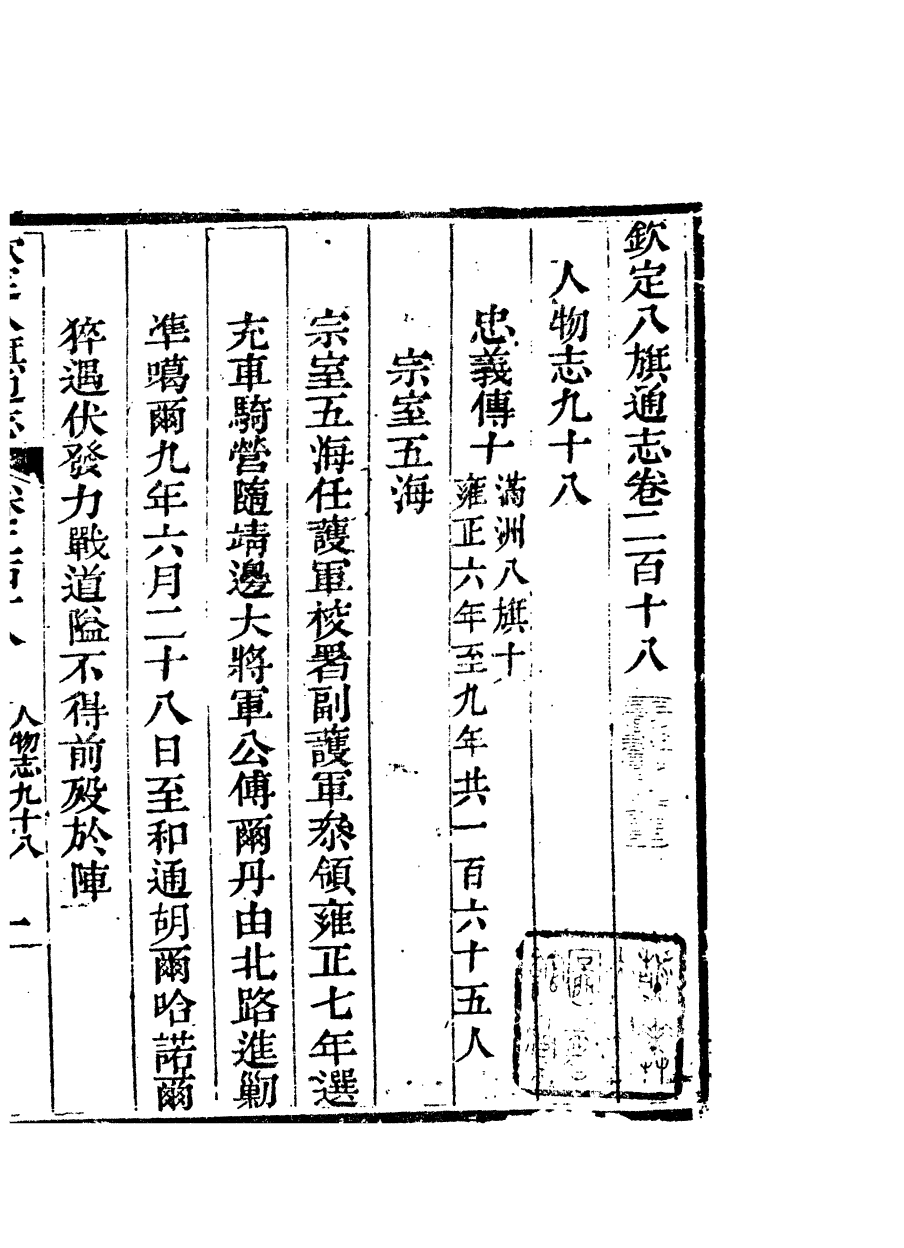 欽定八旗通志卷二百十八
人物志九十八
忠義傳十
滿洲八旗十
雍正六年至九年共一百六十五人
宗室五海
宗室五海任護軍校署副護軍叅領雍正七年選
充車騎營隨靖邊大將軍公傅爾丹由北路進勦
準噶爾九年六月二十八日至和通胡爾哈諾爾
猝遇伏發力戰道隘不得前歿於陣
人物志九十八